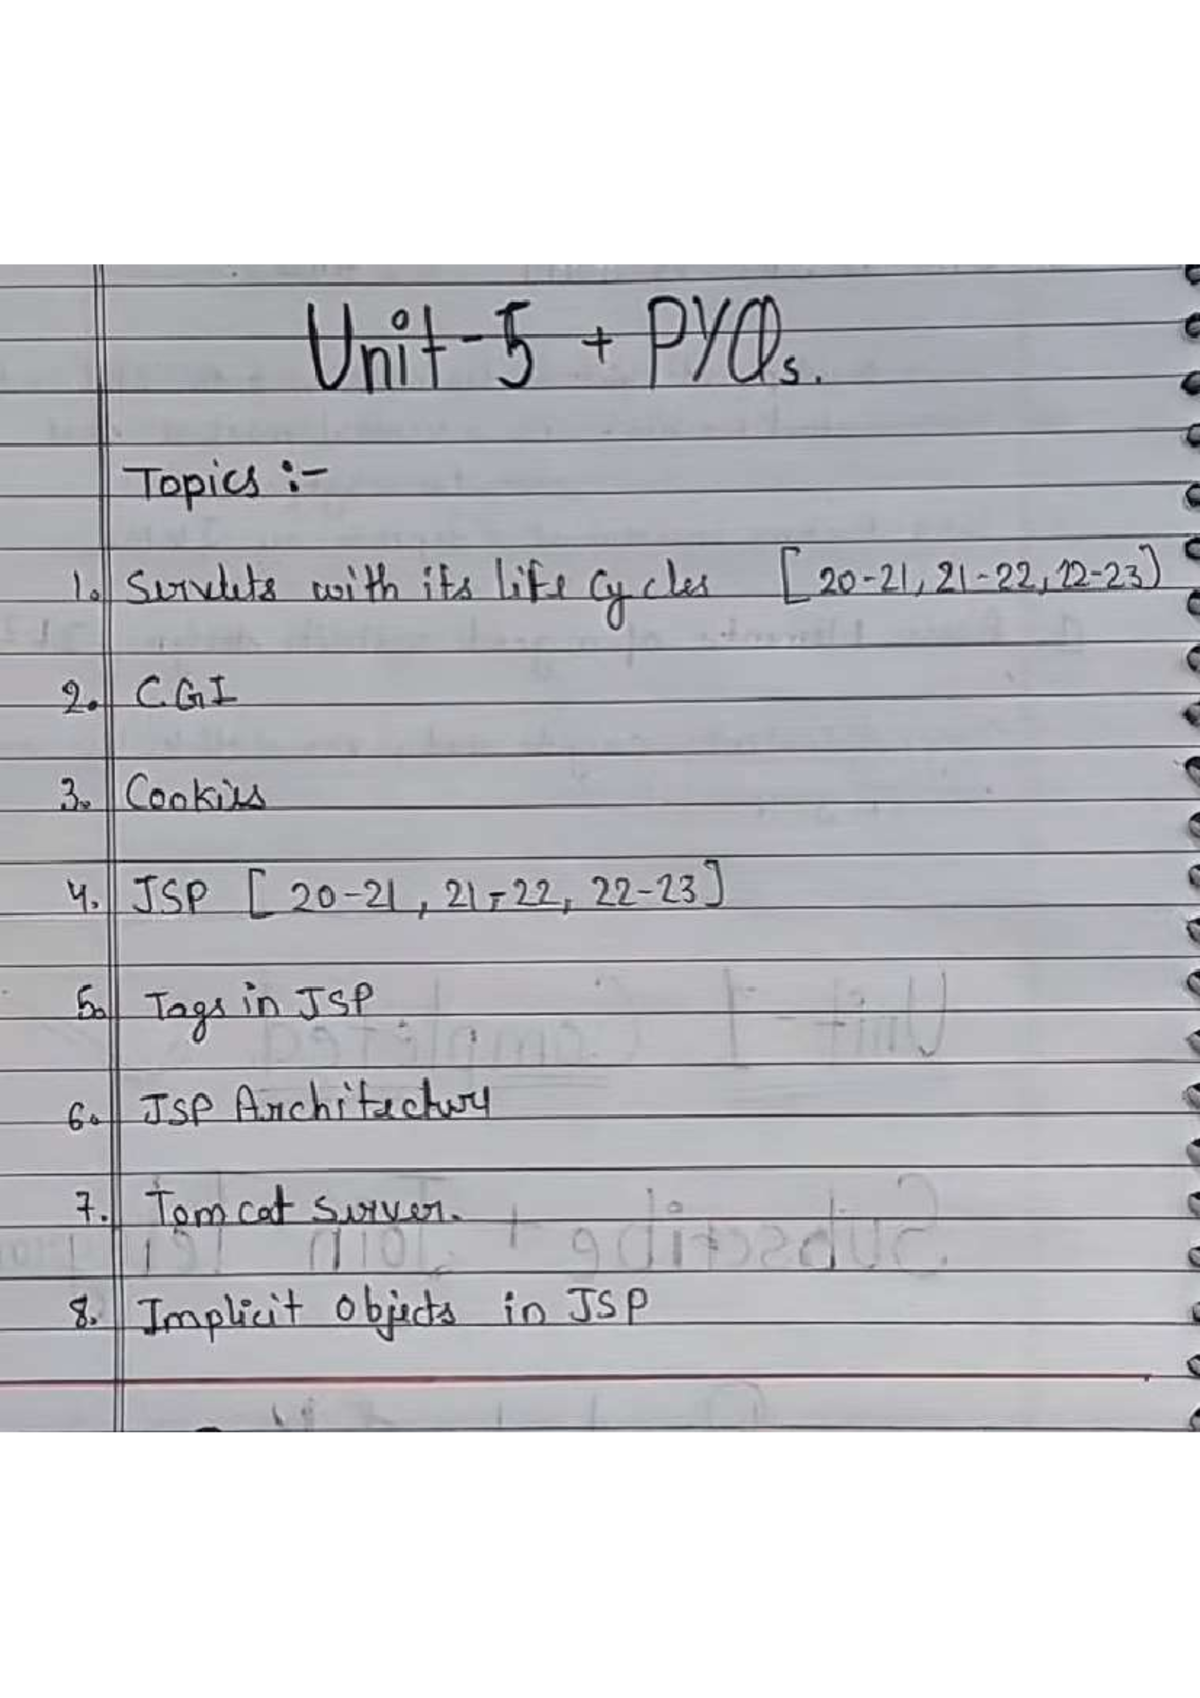 Unit-5 + PYQs.
Topics :-
1. Servlets with its life Cycles [20-21, 21-22, 22-23]
2. CGI
3. Cookies
4. JSP [20-21, 21-22, 22-23]
5. Tags in JSP
6. JSP Architecture
7. Tomcat server.
8. Implicit Objects in JSP